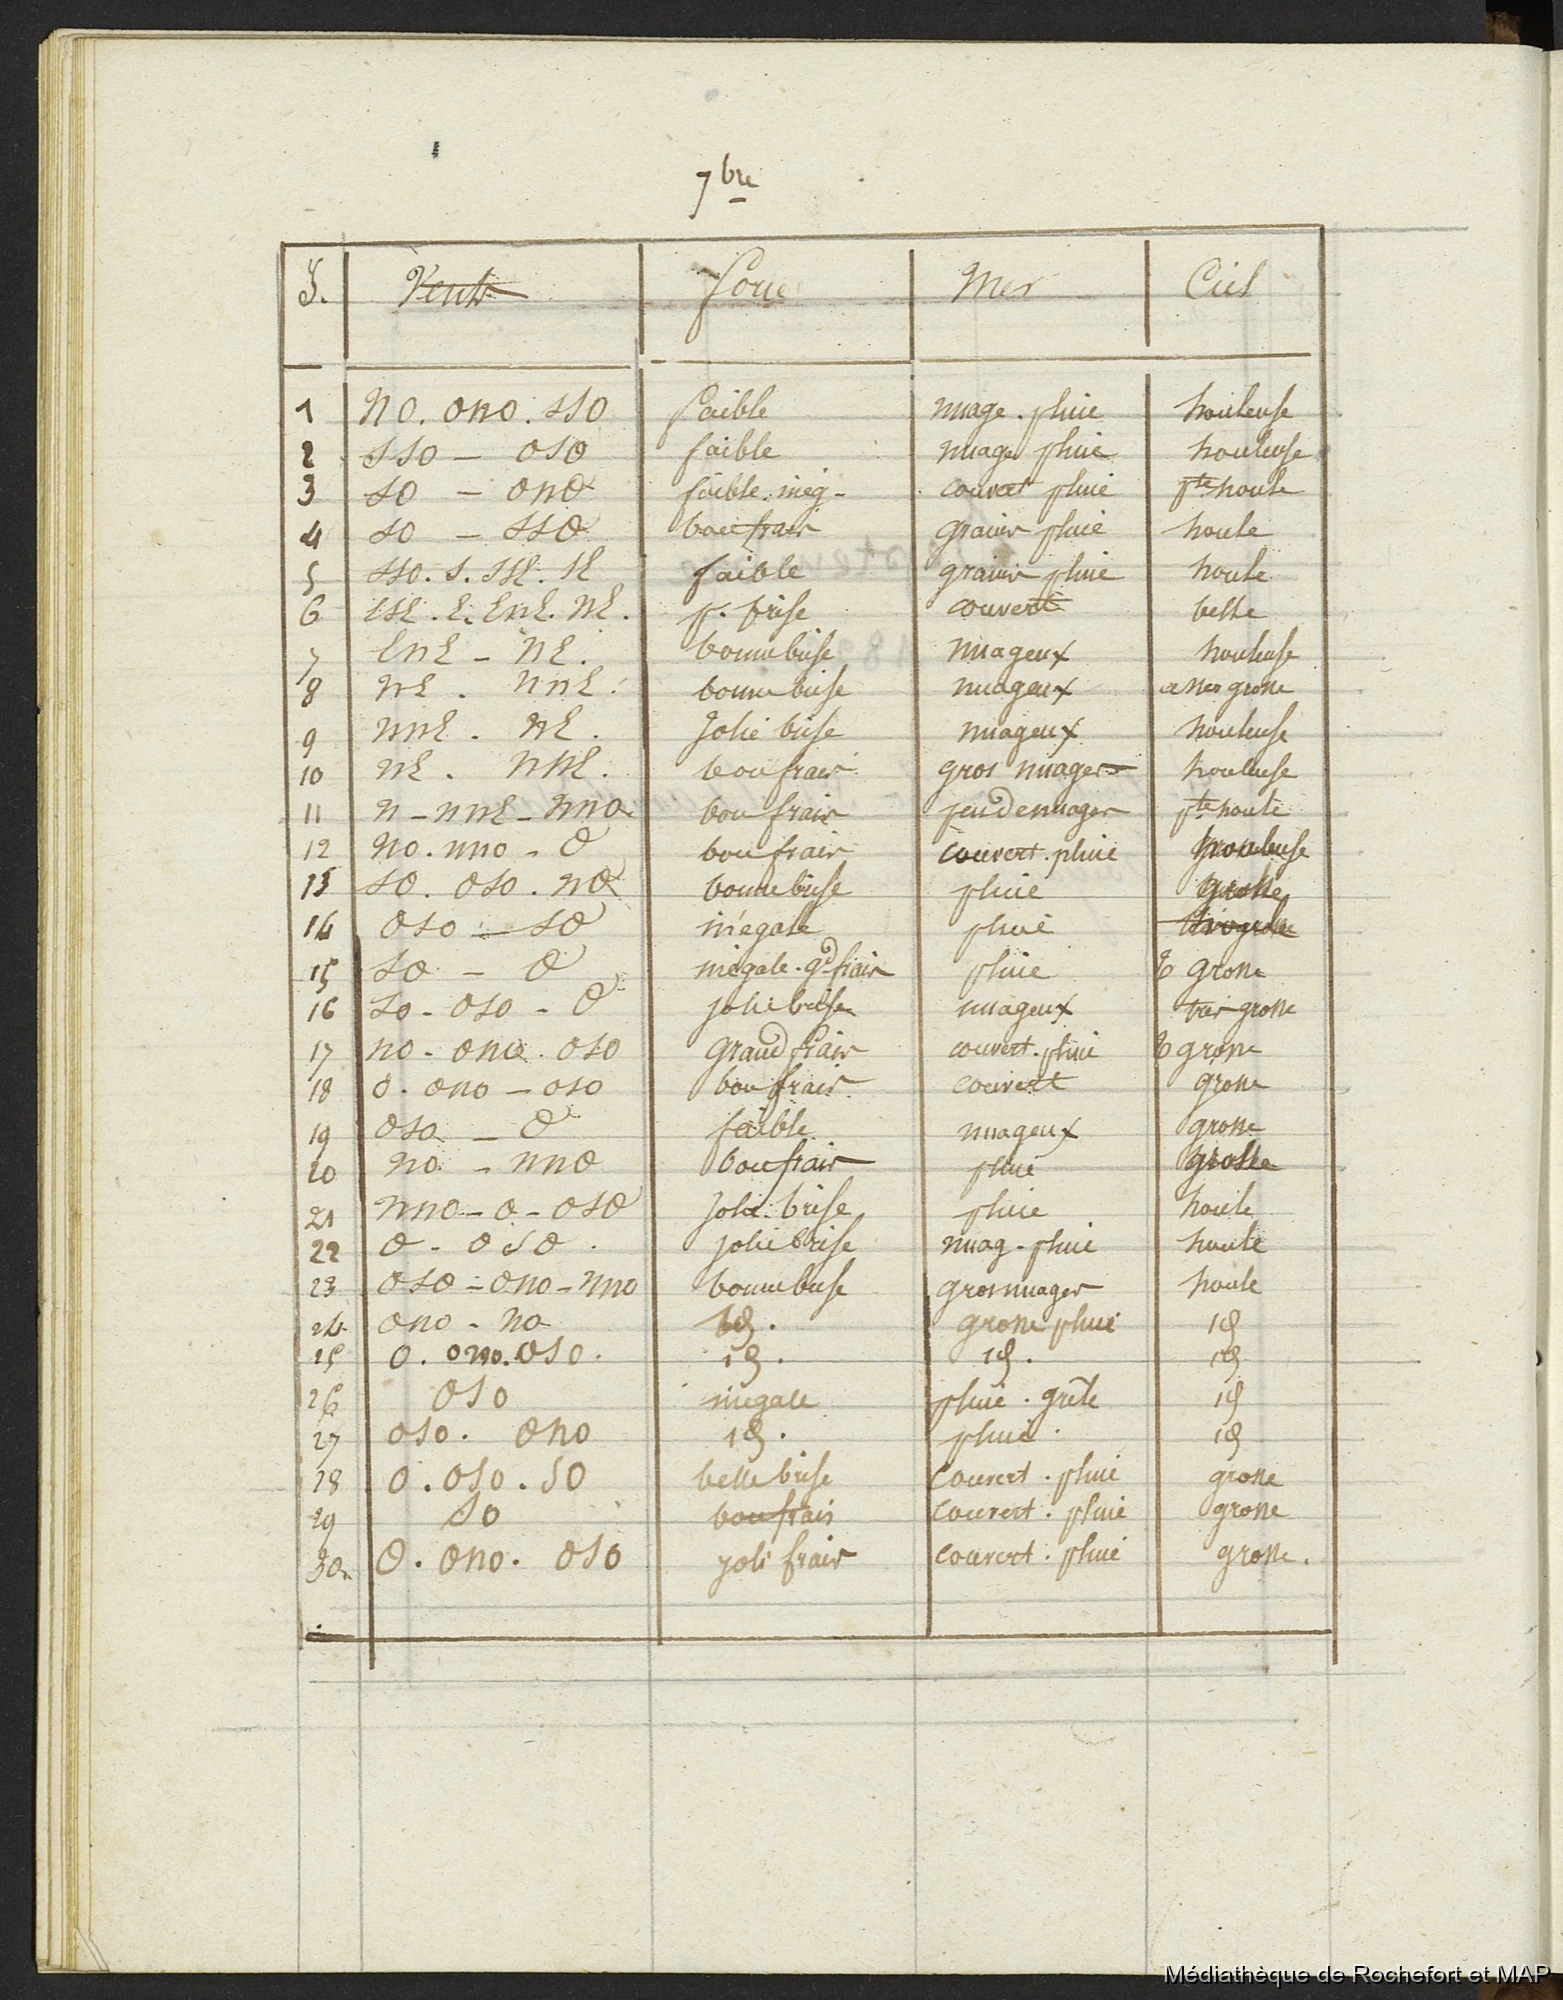 7bre
J. Vents force Mer Ciel
1 NO. ONO. SSO faible nuage. pluie houleuse
2 SSO - OSO faible nuages pluie houleuse
3 SO - ONO faible. inég- couvert pluie pte houle
4 SO - SSO bon frais grains pluie houle
5 SSO. S. SSE. SE faible grains pluie houle
6 ESE. E. ENE. NE. p. brise couvert belle
7 ENE - NE. bonne brise nuageux houleuse
8 NE. NNE. bonne brise nuageux grosse
9 NNE. NE. Jolie brise nuageux houleuse
10 NE. NNE. bon frais gros nuages houleuse
11 N - NNE - NNO bon frais peu de nuages pte houle
12 NO. NNO - O bon frais couvert. pluie houleuse
13 SO. OSO. NO bonne brise pluie grosse
14 OSO - SO inégale pluie très grosse
15 SO - O inégale. gd frais pluie T grosse
16 SO - OSO - O jolie brise nuageux très grosse
17 NO - ONO. OSO grand frais couvert. pluie T grosse
18 O. ONO - OSO bon frais couvert grosse
19 OSO - O faible nuageux grosse
20 NO - NNO bon frais pluie grosse
21 NNO - O - OSO Jolie brise pluie houle
22 O - OSO. jolie brise nuag - pluie houle
23 OSO - ONO - NNO bonne brise gros nuages houle
24 ONO - NO id. grosse pluie id
25 O. ONO. OSO. id. id. id
26 OSO inégale pluie. grêle id
27 OSO. ONO id. pluie. id
28 O. OSO. SO belle brise couvert. pluie grosse
29 SO bon frais couvert. pluie grosse
30 O. ONO. OSO joli frais couvert. pluie grosse.
Médiathèque de Rochefort et MAP